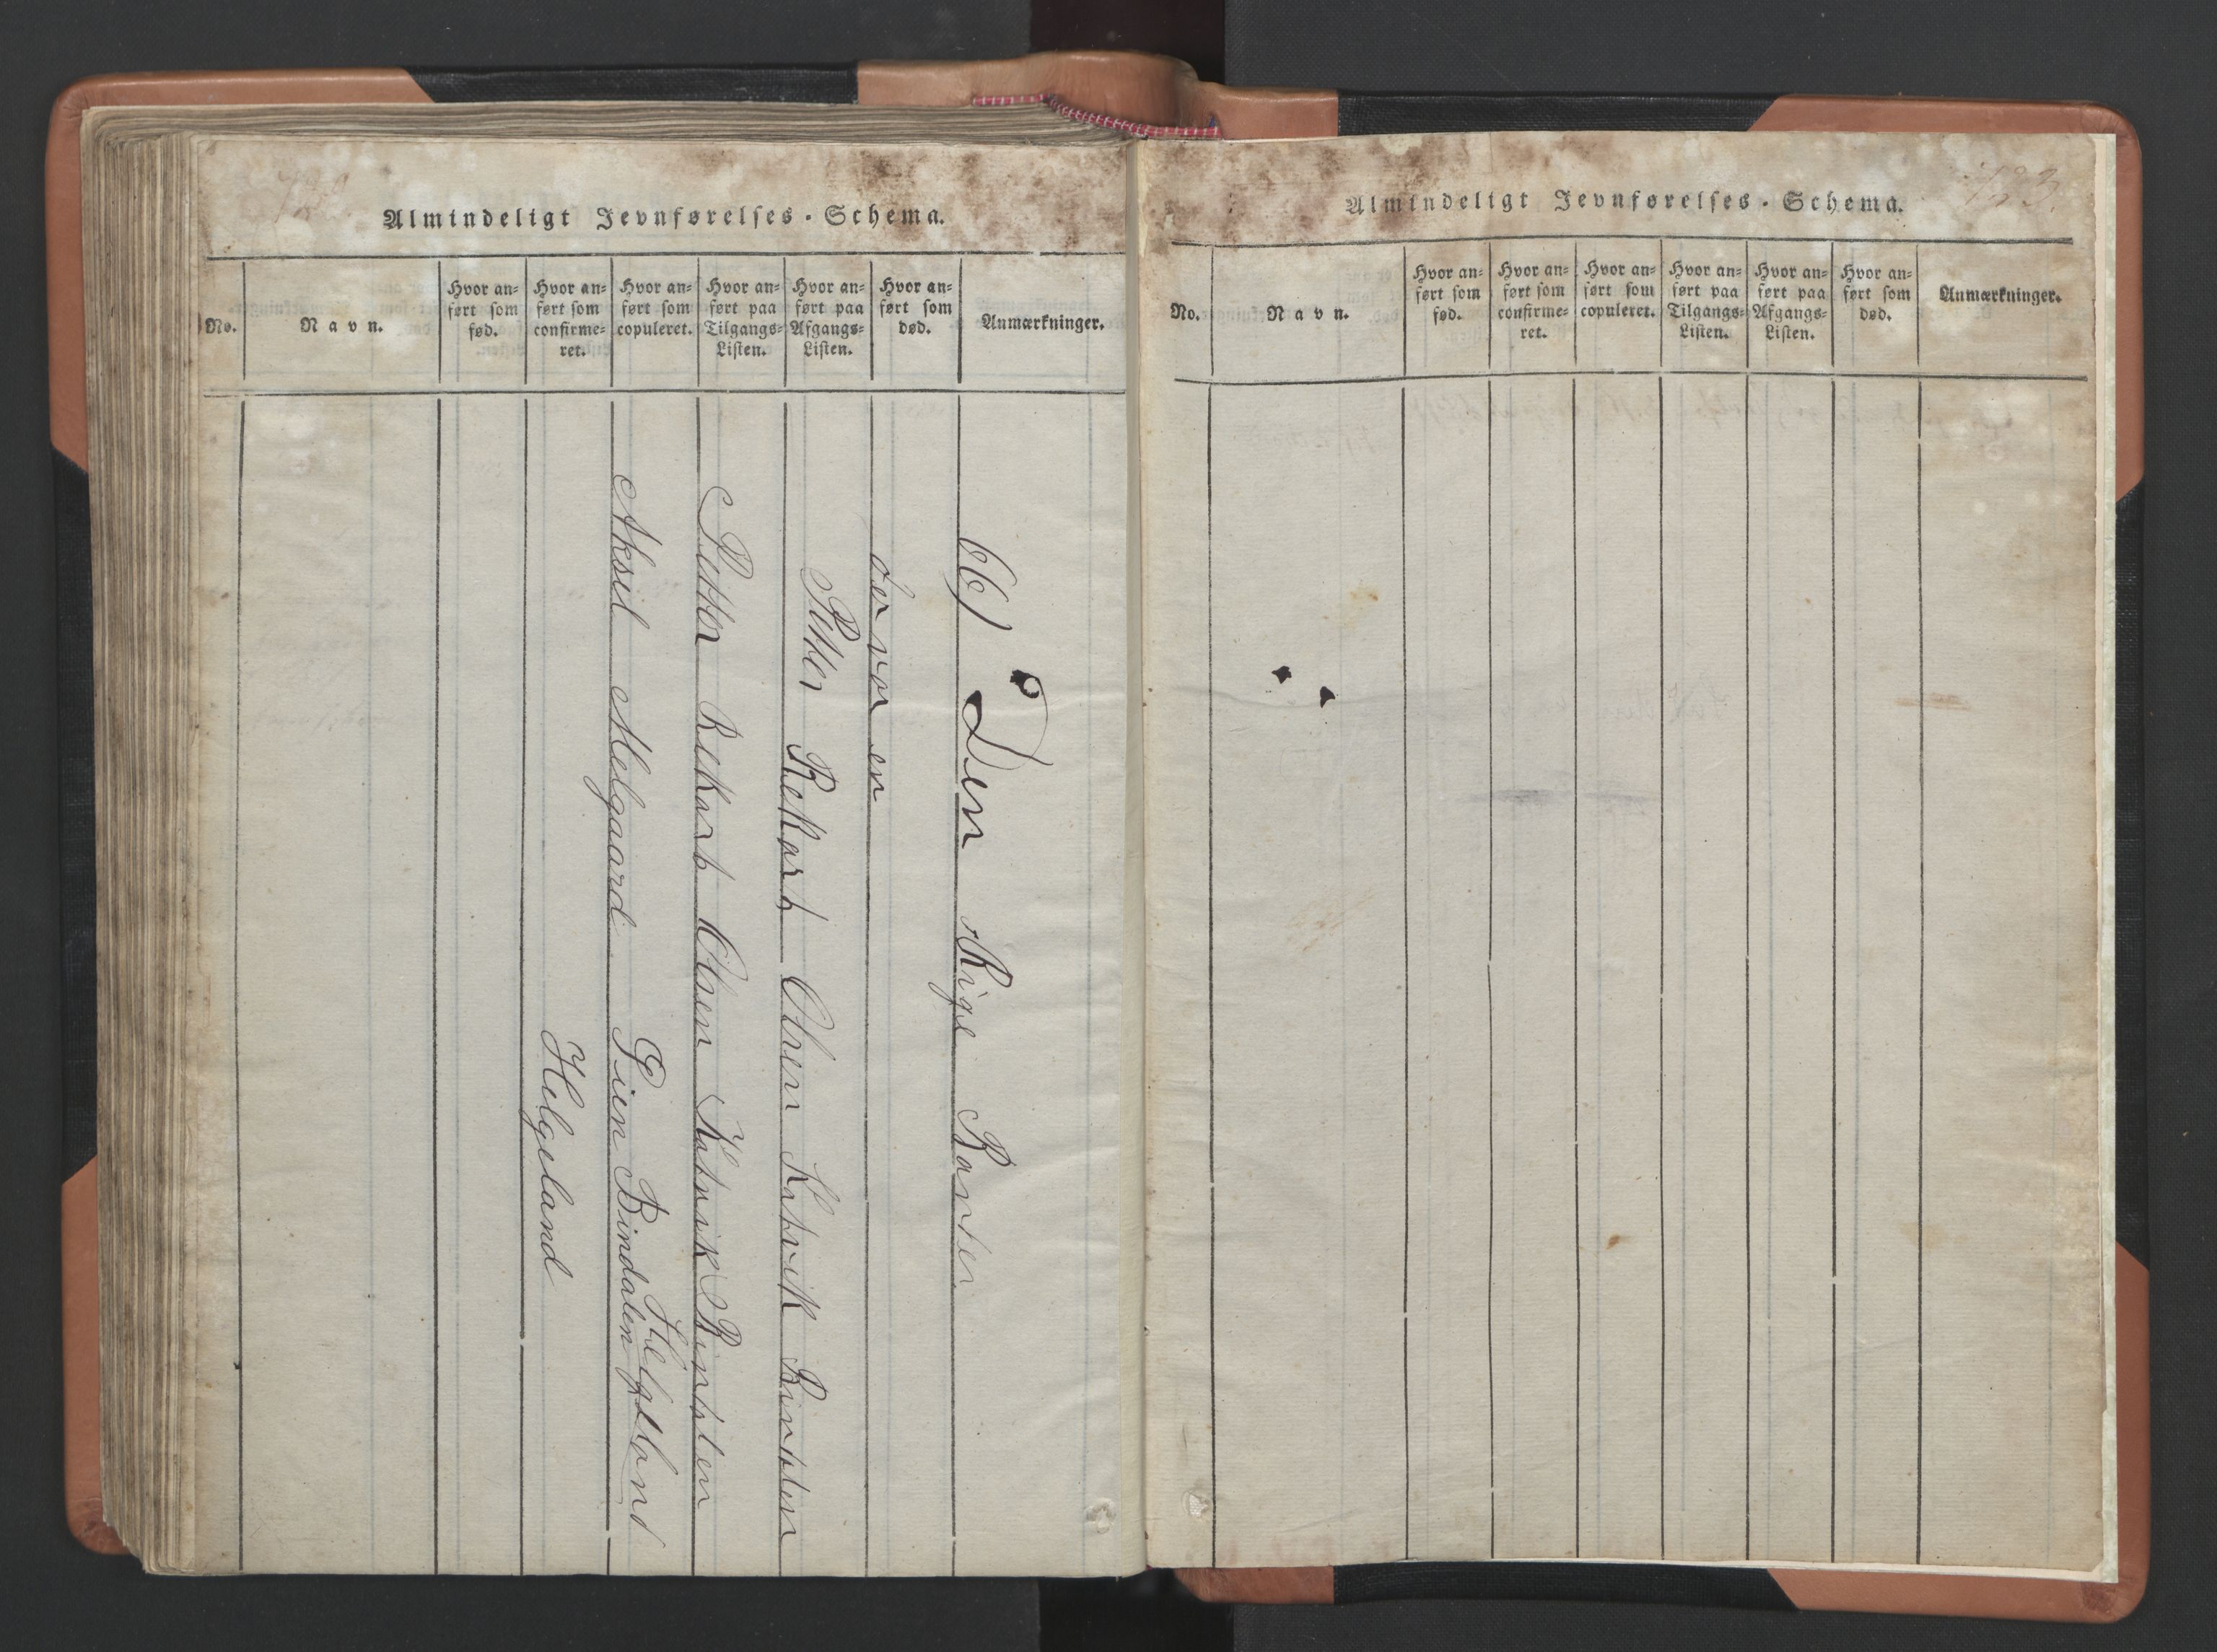 Almindeligt Jevnførelses-Schema.
No.
Navn.
Hvor an-
ført som
fød.
Hvor an-
ført som
confirme-
ret.
Hvor an-
ført som
copuleret.
Hvor an-
ført paa
Tilgangs-
Listen.
Hvor an-
ført paa
Afgangs-
Listen.
Hvor an-
ført som
død.
Anmærkninger.
66) Den Rige
der var en
Petter Rekart Olsen
Petter Rekart Olsen
Aksel Melgaard Bindalen Helgeland
Helgeland
123.
Almindeligt Jevnførelses-Schema.
No.
Navn.
Hvor an-
ført som
fød.
Hvor an-
ført som
confirme-
ret.
Hvor an-
ført som
copuleret.
Hvor an-
ført paa
Tilgangs-
Listen.
Hvor an-
ført paa
Afgangs-
Listen.
Hvor an-
ført som
død.
Anmærkninger.